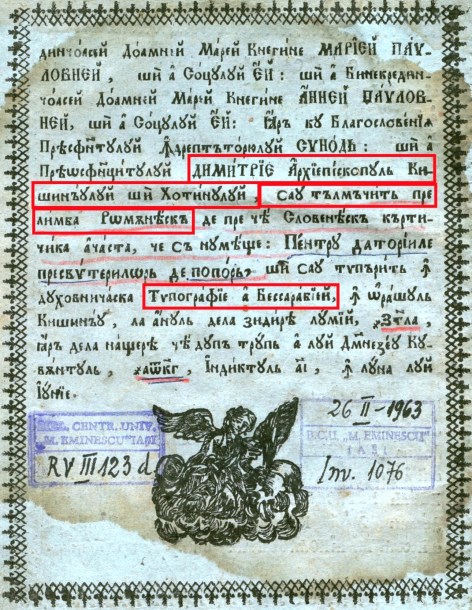 динчоасей Доамней Марей Кнегине МАРІЕЙ ПАУ-
ЛОВНЕЙ, шй а Соцулуй ЕЙ: шй а Бинекредин-
чоасей Доамней Марей Кнегине АННЕЙ ПАУЛОВ-
НЕЙ, шй а Соцулуй ЕЙ: Ꙗръ ку Благословенія
Прѣсфи́тулуй Ꙟдрептъторюлуй СУНОДЬ: шй а
Прѣѡсфи́цитулуй ДИМИ́ТРІЕ А҆рхїепі́скопуль Ки-
шинъ́улуй шй Хоти́нулуй, сау тълмъчи́тъ пре
лимба Рѡмѫнѣскъ де пре чѣ Словенѣскъ кърти-
чика а҆часта, че съ нумѣще: Пентру даторіиле
пресвѵ́терилѡръ де попо́ръ, шй сау тѵпъри́тъ ꙟ
духовничаска Тѵпографі́е а Бессара́бїей, ꙟ ѡ҆ра́шуль
Кишинъу, ла а҆нуль дела зиди́рѣ лу́мїй,
ꙗръ дела нащерѣ чѣ дупъ трупь а луй Дмнезеу Ку-
вѫнтуль, ҂аѡкг, І҆ндиктуль аі, ꙟ лу́на луй
І҆у́нїе.
BIBL. CENTR. UNIV.
"M. EMINESCU" IASI
RV III 123 d
26 II-1963
B.C.U. „M. EMINESCU"
IASI
Inv. 1076